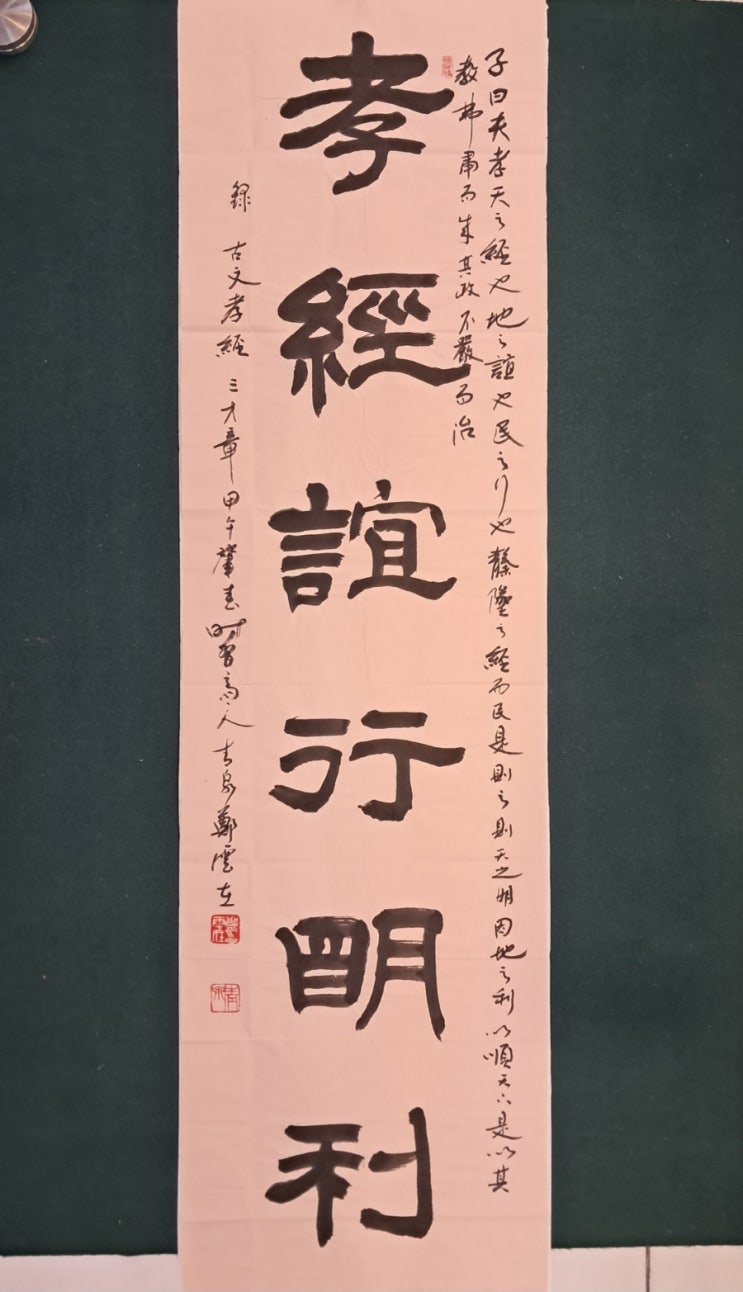 子曰夫孝天之經也地之誼也民之行也
墬之經而民是則之則天之明因地之利以順天下是以其
教弗肅而成其政不嚴而治
孝經誼行明利
錄 古文孝經 三才章 甲午肇春 時習齋主人 吉泉 鄭